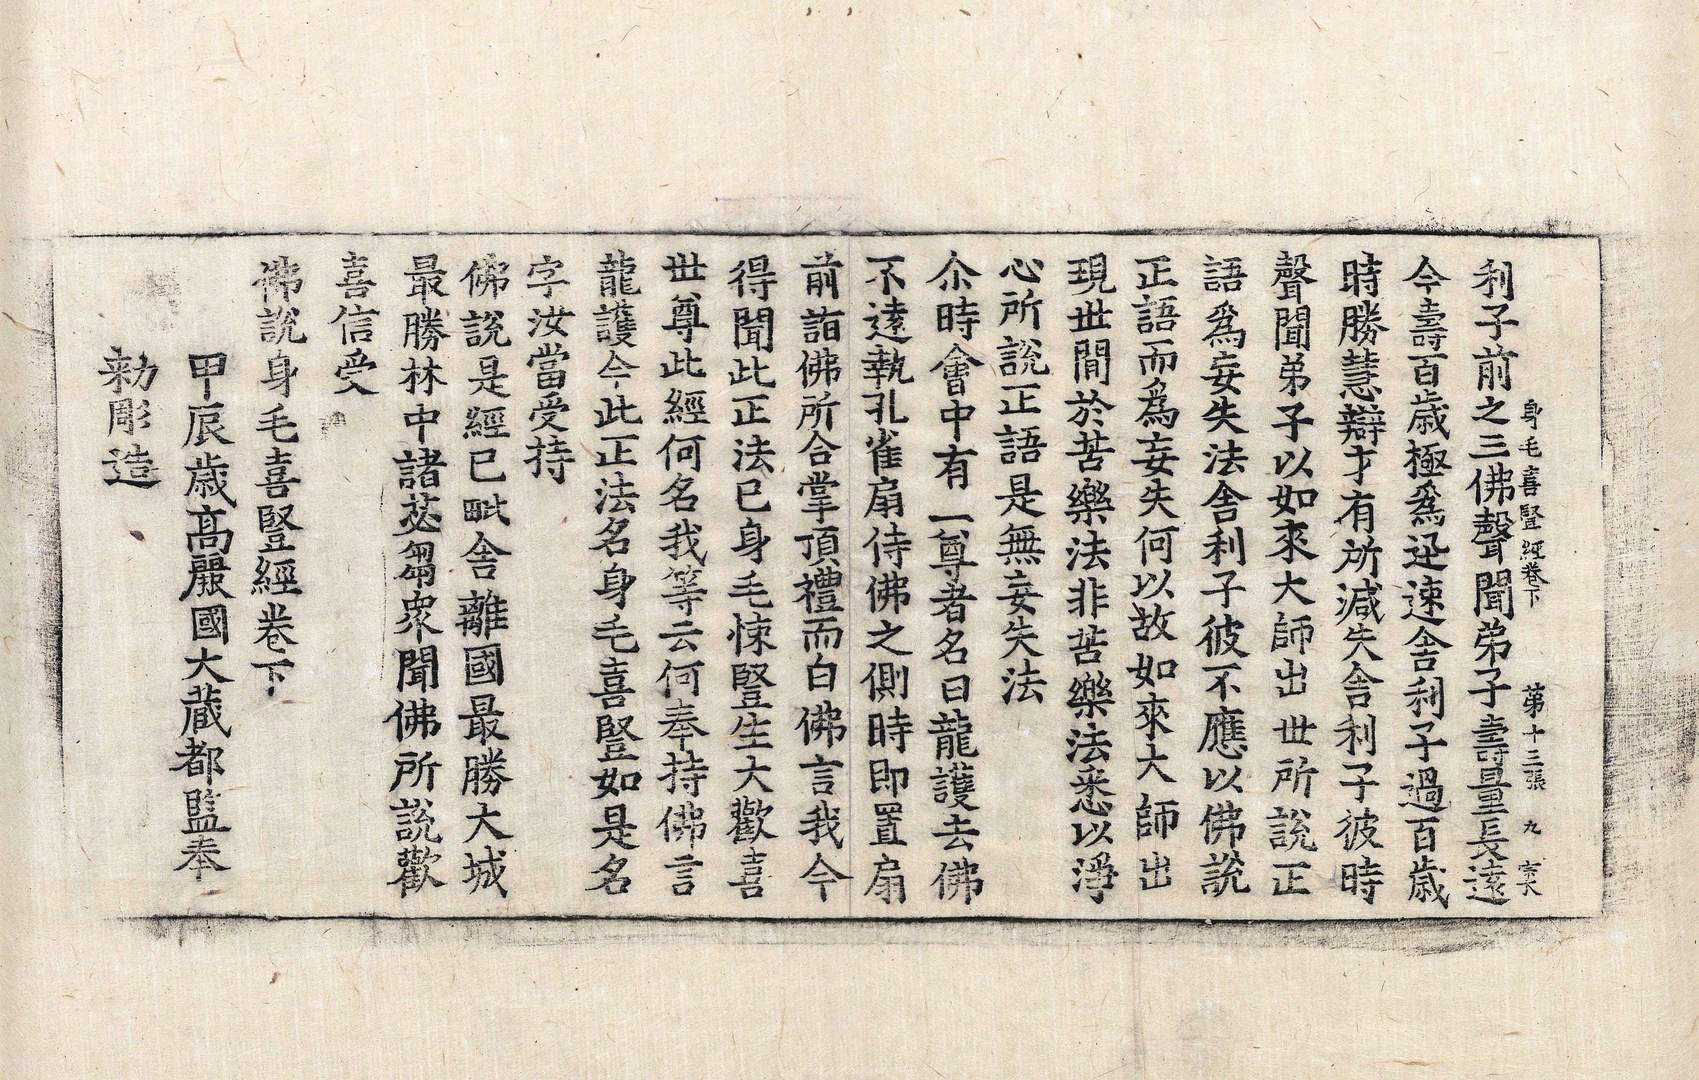 身毛喜豎經卷下 第十三張 九
利子前之三佛聲聞弟子壽量長遠
今壽百歲極爲迅速舍利子過百歲
時勝慧辯才有所減失舍利子彼時
聲聞弟子以如來大師出世所說正
語爲妄失法舍利子彼不應以佛說
正語而爲妄失何以故如來大師出
現世間於苦樂法非苦樂法悉以淨
心所說正語是無妄失法
尒時會中有一尊者名曰龍護去佛
不遠執孔雀扇侍佛之側時即置扇
前詣佛所合掌頂禮而白佛言我今
得聞此正法已身毛悚豎生大歡喜
世尊此經何名我等云何奉持佛言
龍護今此正法名身毛喜豎如是名
字汝當受持
佛說是經已毗舍離國最勝大城
最勝林中諸苾芻衆聞佛所說歡
喜信受
佛說身毛喜豎經卷下
甲辰歲高麗國大藏都監奉
勅彫造